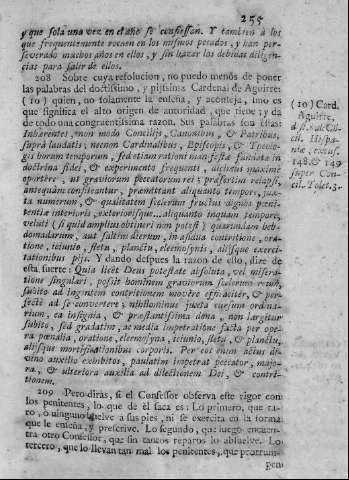 255
y que sola una vez en el año se confiessan. Y tambien á los
que frequentemente rocaen en los mismos pecados, y han per-
severado muchos años en ellos, y sin hazer las debidas diligen-
cias para salir de ellos.
208 Sobre cuya resolucion, no puedo menos de poner
las palabras del doctissimo, y piissimo Cardenal de Aguirre:
(10) quien, no solamente la enseña, y aconseja, sino es
que significa el alto origen de autoridad, que tiene; y dà
de todo una congruentissima razon. Sus palabras son estas:
Inhærentes, non modo Concilijs, Canonibus, & Patribus,
supra laudatis; necnon Cardinalibus, Episcopis, & Theolo-
gis horum temporum, sed etiam rationi manifestæ fundatæ in
doctrina fidei, & experimento frequenti, dicimus maximè
oportere, ut graviorum peccatorum rei; præsertim relapsi,
antequam conficeantur, præmittant aliquanto tempore, jux-
ta numerum, & qualitatem scelerum fructus dignos pœni-
tentiæ interioris, exteriorisque... aliquanto inquam tempore,
veluti (si quid amplius obtineri non potest) quarumdam heb-
domadarum, aut saltim dierum, in assidua contritione, ora-
tione, jejunio, fletu, planctu, eleemosynis, alijsque exerci-
tationibus pijs. Y dando despues la razon de ello, dize de
esta suerte: Quia licèt Deus potestate absoluta, vel misera-
tione singulari, possit hominem graviorum scelerum reum,
subitò ad ingentem contritionem movere efficaciter, & per-
fectè ad se convertere; nihilominus juxta cursum ordina-
rium, ea insignia, & præstantissima dona, non largitur
subito, sed gradatim, ac media impetratione facta per ope-
ra pœnalia, oratione, eleemosyna, jejunio, fletu, & planctu,
alijsque mortificationibus corporis. Per eos enim actus di-
vino auxilio exhibitos, paulatim impetrat peccator, majo-
ra, & ulteriora auxilia ad dilectionem Dei, & contri-
tionem.
209 Pero diràs, si el Confessor observa este rigor con
los penitentes, lo que de èl saca es: Lo primero, que ra-
ro, o ninguno buelve à sus pies, ni se exercita en la forma
que le enseña, y prescrive. Lo segundo, que luego encuen-
tra otro Confessor, que sin tantos reparos lo absuelve. Lo
tercero, que lo llevan tan mal los penitentes, que prorrum-
pen
(10) Card.
Aguirre,
Concil. Hispa-
148. & 149
super Con-
cil. Tolet. 3.